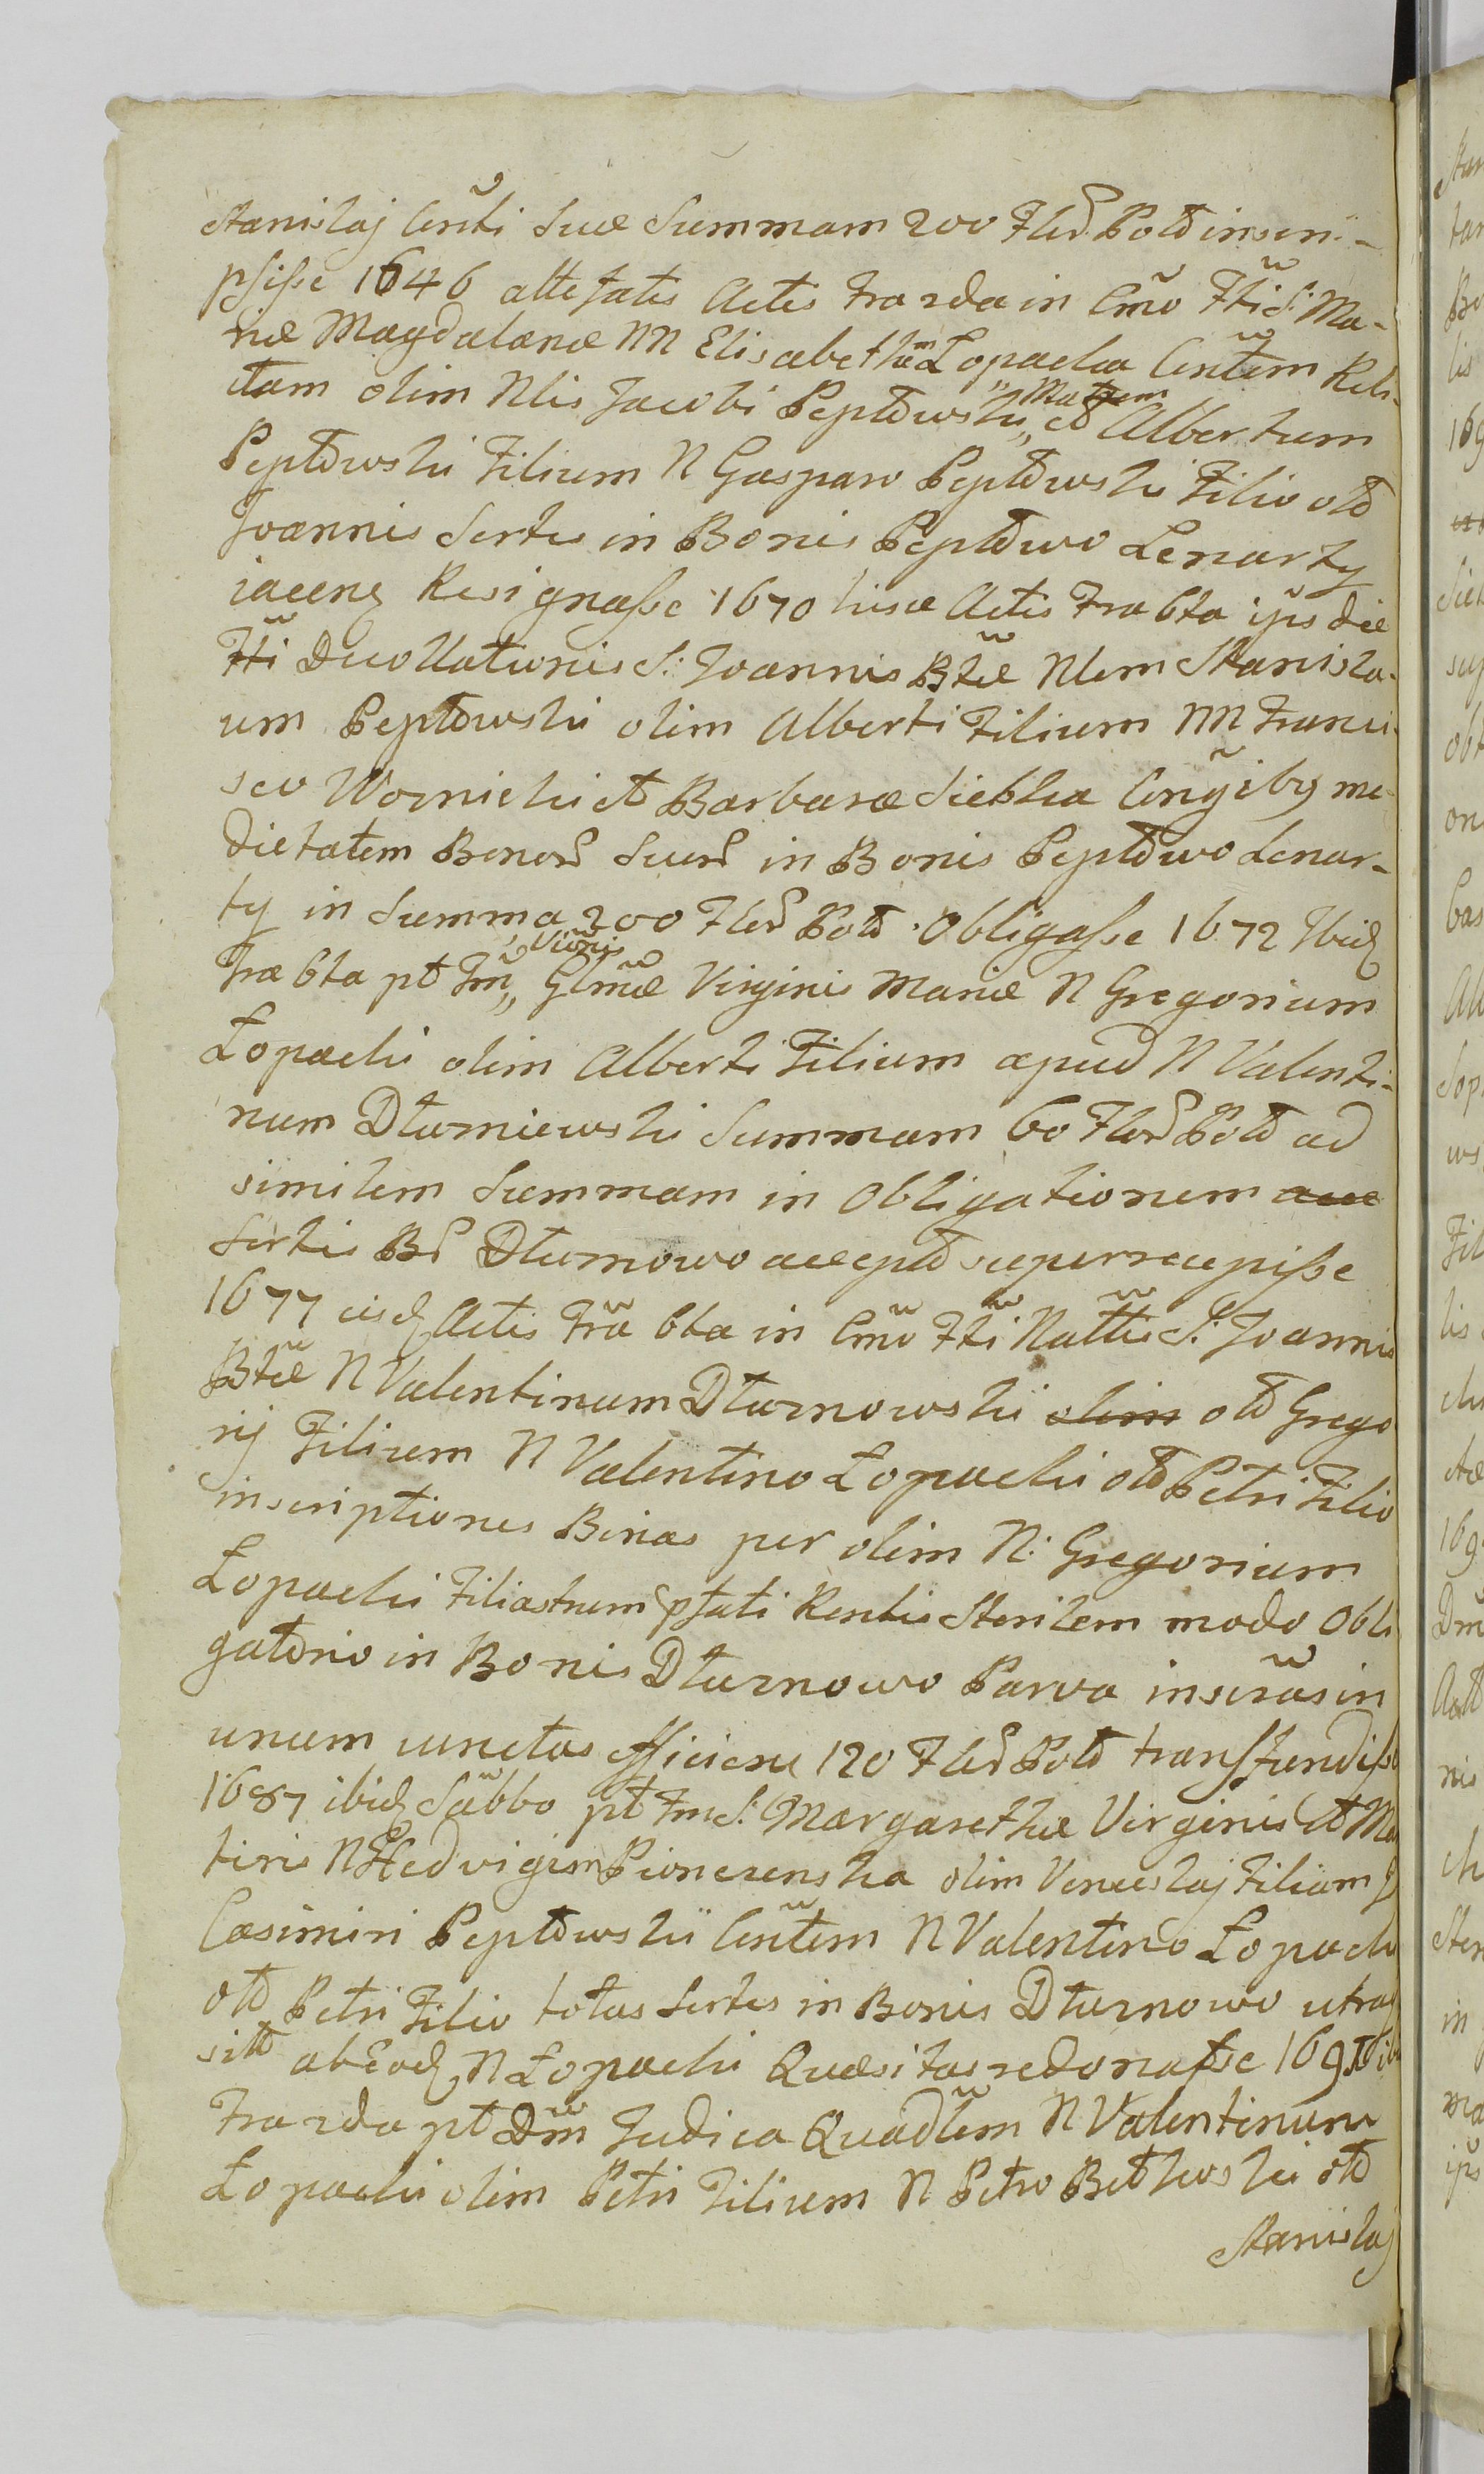 Stanislaj Cnti suæ Summam 200 Flor. Pold inscri-
psisse 1646 attefatis Actis Fra 2da in Cmo Fti S: Ma-
riæ Magdalenæ NN Elisabetham Łopacka Cntem Reli-
ctam olim Nlis Jacobi Peptowski „Matrem„ et Albertum
Peptowski Filium N Gasparo Peptowski Filio old
Joannis Sortes in Bonis Peptowo Lenarty
iacenq Resignasse 1670 hisce Actis Fra 6ta ips die
Fti Decollationis S: Joannis Btæ Nlem Stanisla-
um Peptowski olim Alberti Filium NN Franci-
sco Wornicki et Barbaræ Siebka Cngibq me-
dietatem Bonor Suor in Bonis Peptowo Lenar-
ty in Summa 200 Flor Pold Obligasse 1672 Ibidq
Fra 6ta pt Fm „Vionis„ Glmæ Virginis Mariæ N Gregorium
Łopacki olim Alberti Filium apud N Valenti-
num Dłurniewski Summam 60 Flor Pold ad
similem Summam in Obligationem
Sortis Br Dłurnowo accept superrecepisse
1677 eisdq Actis Fra 6ta in Cmo Fti Nattis S: Joannis
Btæ N Valentinum Dłurnowski olim old Grego
rij Filium N Valentino Łopacki old Petri Filio
inscriptiones Binas per olim N: Gregorium
Łopacki Filiastrum pfati Rentis Sterilem modo Obli
gatorio in Bonis Dłurnowo Parva inscras in
unum iunctas efficien 120 Flor Pold transfundisse
1687 ibidq Sabbo pt Fm S: Margarethæ Virginis et Mar
tiris N Hedvigem Pionczenska olim Venceslaj Filiam
Casimiri Peptowskii Cntem N Valentino Łopacki
old Petri Filio totas Sortes in Bonis Dłurnowo utraq
sitt ab Eodq N Łopacki Quæsitas redonasse 1691
Fra 2da pt Dm Judica Quadlem N Valentinum
Łopacki olim Petri Filium N Petro Betkowski old
Stanislaj